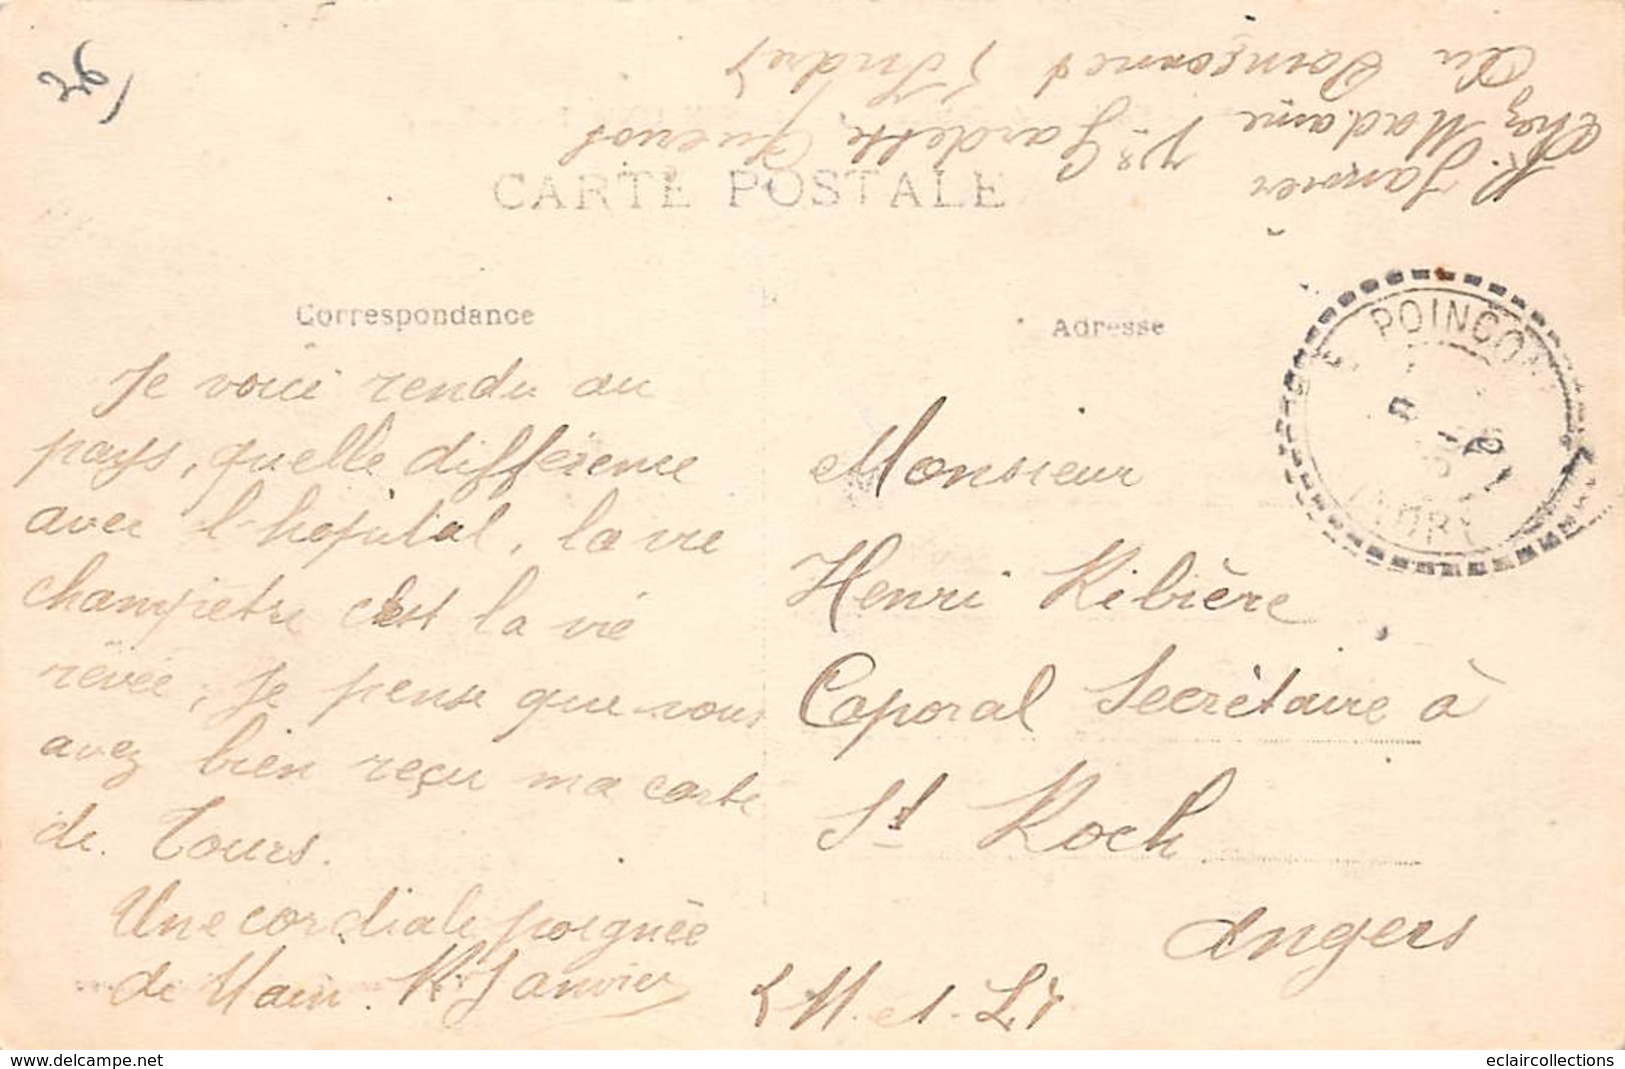 26
R. Janvier
Chez Madame Vve Gardette Guenot
Au Poinçonnet (Indre)
CARTE POSTALE
Correspondance
Je voici rendu au
pays, quelle différence
avec l'hôpital, la vie
champetre c'est la vie
rêvée, Je pense que vous
avez bien reçu ma carte
de Tours.
Une cordiale poignée
de Main. R. Janvier
Adresse
POINÇON
Monsieur
Henri Ribière
Caporal Secrétaire à
St Roch
Angers
(M. et. L)
www.delcampe.net
eclaircollections